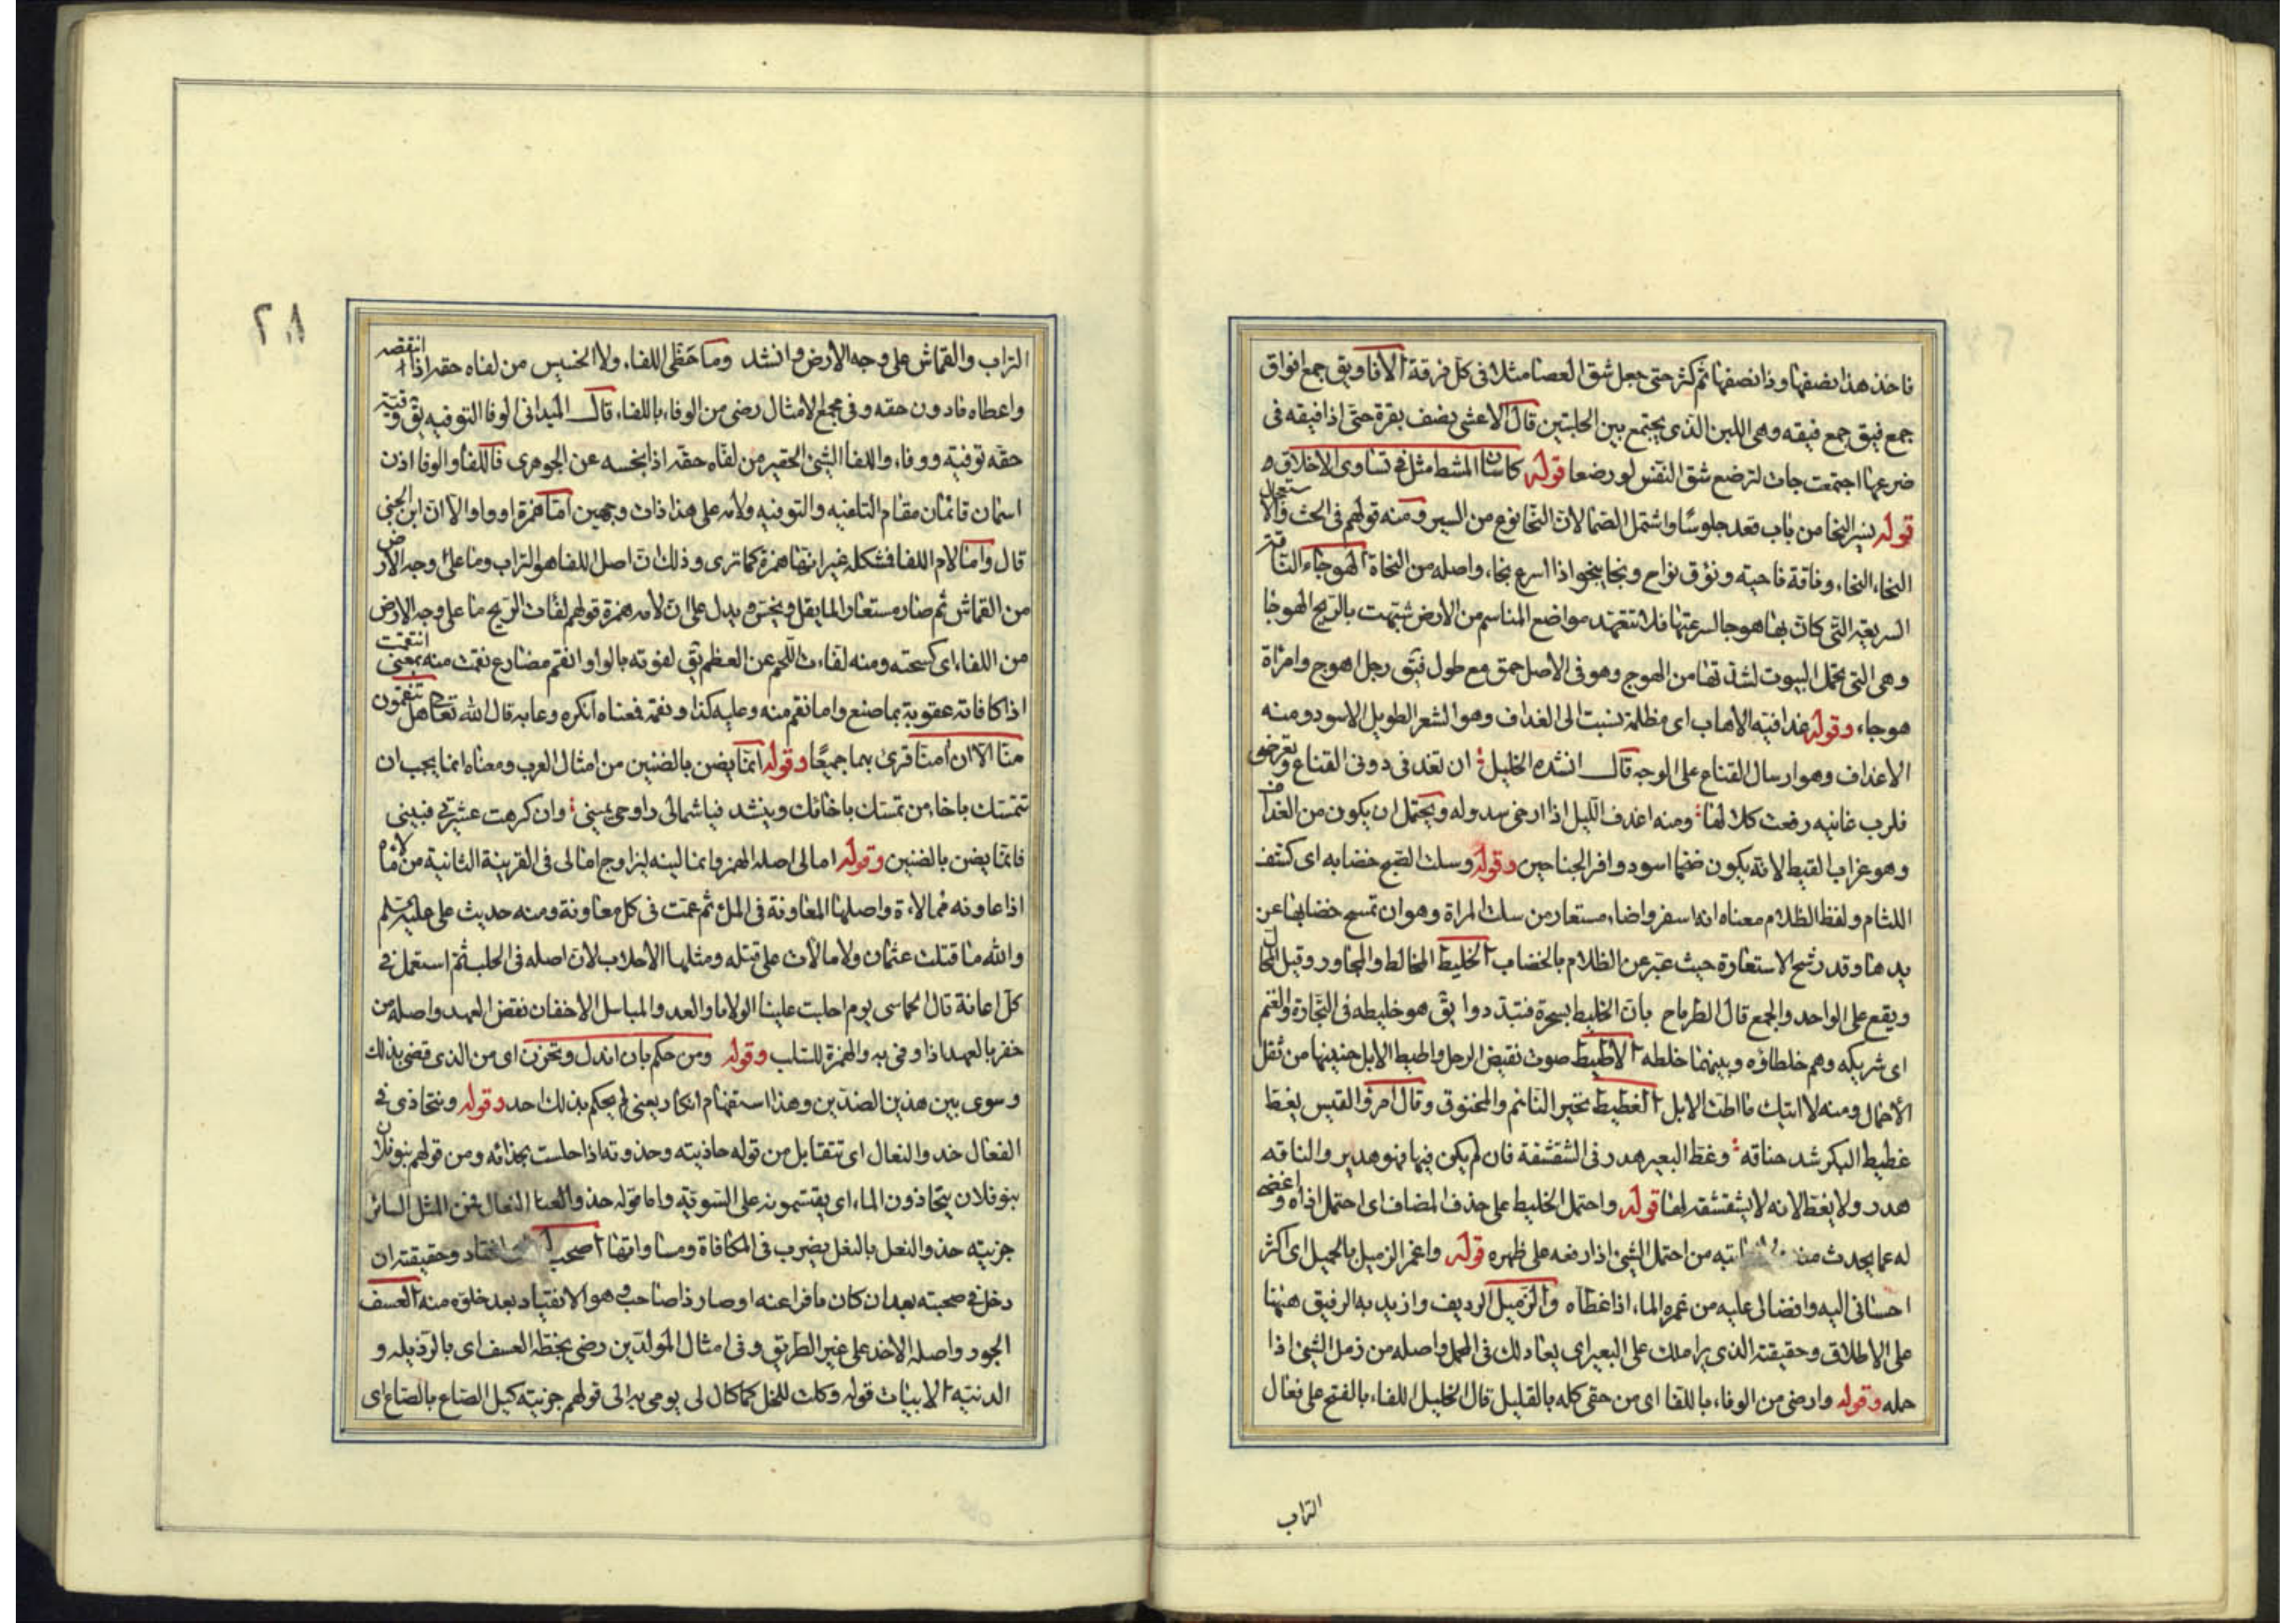 فاخذ هذا نصفها وذا نصفها ثم كثر حتى جعل شق العصا مثلا فى كل فرقة الافاويق جمع افواق
جمع فيق جمع فيقه وهى اللبن الذى يجتمع بين الحلبتين قال الاعشى يصف بقرة حتى اذا فيقه فى
ضرعها اجتمعت جات لترضع شق النفس لو رضعا قوله كاسنان المشط مثل فى تساوى الاخلاق
قوله بسير النجا من باب قعد جلوسا واشتمل الصما لان النجا نوع من السير ومنه قولهم فى الحث والاستعجال
النجاء النجاء وناقة ناجيته ونوق نواج ونجا ينجوا اذا اسرع نجاء واصله من النجاة الهوجاء الناقة
السريعة التى كان بها هوجا لسرعتها فلا تتعهد مواضع المناسم من الارض شبهت بالريح الهوجا
وهى التى تحمل البيوت لشدتها من الهوج وهو فى الاصل حمق مع طول يق رجل اهوج وامراة
هوجاء وقوله غدافية الاهاب اى مظلمة نسبت الى الغداف وهو الشعر الطويل الاسود ومنه
الاغداف وهو ارسال القناع على الوجه قال انشده الخليل ان تغدفى دونى القناع وتعرضى
فلرب غانيه رفعت كلالها ومنه اغدف الليل اذا ارخى سدوله ويحتمل ان يكون من الغداف
وهو غراب القيظ لانه يكون ضخما اسود وافر الجناحين وقوله وسلت الصبح خضابه اى كشف
اللثام ولفظ الظلام معناه انه اسفر واضاء مستعار من سلت المراة وهو ان تمسح خضابها عن
يدها وقد رشح الاستعارة حيث عبر عن الظلام بالخضاب الخليط المخالط والمجاور وقيل
ويقع على الواحد والجمع قال الطرماح بان الخليط بسحرة فتبددوا يق هو خليطه فى التجارة والغنم
اى شريكه وهم خلطاؤه وبينهما خلطه الاطيط صوت نقيض الرحل واطيط الابل حنينها من ثقل
الاحمال ومنه لا اتيك ما اطت الابل الغطيط نخير النائم والمخنوق وقال امرؤ القيس يغط
غطيط البكر شد خناقه وغط البعير هدر فى الشقشقة فان لم يكن فيها فهو هدير والناقه
هدر ولا يغط لانه لا يشقشقه لها قوله واحتمل الخليط على حذف المضاف اى احتمل اذاه واغضه
له عما يحدث من من احتمل الشئ اذا رفعه على ظهره قوله واغمر الزميل بالجميل اى اكثر
احسانى اليه وافضالى عليه من غمره الماء اذا غطاه والزميل الرديف واريد به الرفيق ههنا
على الاطلاق وحقيقته الذى يزاملك على البعير اى يعادلك فى المحمل واصله من زمل الشئ اذا
حمله وقوله وارضى من الوفاء باللفا اى من حقى كله بالقليل قال الخليل اللفاء بالفتح على فعال
التراب
٢٠٨
التراب والقماش على وجه الارض وانشد وما حظى اللفاء ولا الخسيس من لفاه حقه اذا انتقصه
واعطاه دون حقه وفى مجمع الامثال رضى من الوفاء باللفاء قال الميدانى الوفا التوفيه يق وفيته
حقه توفية ووفاء واللفا الشئ الحقير من لفاه حقه اذا بخسه عن الجوهرى فاللفا والوفا اذن
اسمان قائمان مقام التلفيه والتوفيه ولامه على هذا ذات وجهين اما همزة او واو الا ان ابن الجنى
قال واما لام اللفا فشكله غير انها همزة كما ترى وذلك ان اصل اللفا هو التراب وما على وجه الارض
من القماش ثم صار مستعارا لما يقل ويخس ويدل على ان لامه همزة قولهم لفات الريح ما على وجه الارض
من اللفاء اى كسحته ومنه لفاءت اللحم عن العظم يق لفوته بالواو انقم مضارع نقمت منه بمعنى انتقمت
اذا كافاته عقوبة بما صنع واما نقم منه وعليه كذا ونقمه فمعناه انكره وعابه قال الله تعالى هل تنقمون
منا الا ان امنا قرئ بهما جميعا وقوله انما يضن بالضنين من امثال العرب ومعناه انما يجب ان
تتمسك باخاء من تمسك باخائك وينشد فيا شمالى راوحى يمينى وان كرهت عشرتى فبينى
فانما يضن بالضنين وقوله امالى اصله الهمز وانما لينه ليزاوج امالى فى القرينة الثانية من مالاه
اذا عاونه ممالاءة واصلها المعاونة فى الملئ ثم عمت فى كل معاونة ومنه حديث على عليه السلم
والله ما قتلت عثمان ولا مالات على قتله ومثلها الاحلاب لان اصله فى الحلب ثم استعمل فى
كل اعانة قال الحماسى يوم احلبت علينا الولايا والعدو المباسل الاخفار نقض العهد واصله من
خفر بالعهد اذا وفى به والهمزة للسلب وقوله ومن حكم بان ابذل وتخزن اى من الذى قضى بذلك
وسوى بين هذين الضدين وهذا استفهام انكار يعنى لم يحكم بذلك احد وقوله ونتحاذى فى
الفعال حذو النعال اى نتقابل من قوله حاذيته وحذوته اذا جلست بحذائه ومن قولهم بنو فلان
بنو فلان يتحاذون الماء اى يقتسمونه على السويه واما قوله حذو النعال فمن المثل السائر
جزيته حذو النعل بالنعل يضرب فى المكافاة ومساواتها اصحب انقاد وحقيقته ان
دخل فى صحبته بعد ان كان نافرا عنه او صار ذا صاحب وهو الانقياد بعد خلوه منه العسف
الجور واصله الاخذ على غير الطريق وفى امثال المولدين رضى بخطة العسف اى بالرذيله و
الدنيته الابيات قوله وكلت للخل كما كال لى يومى به الى قولهم جزيته كيل الصاع بالصاع اى